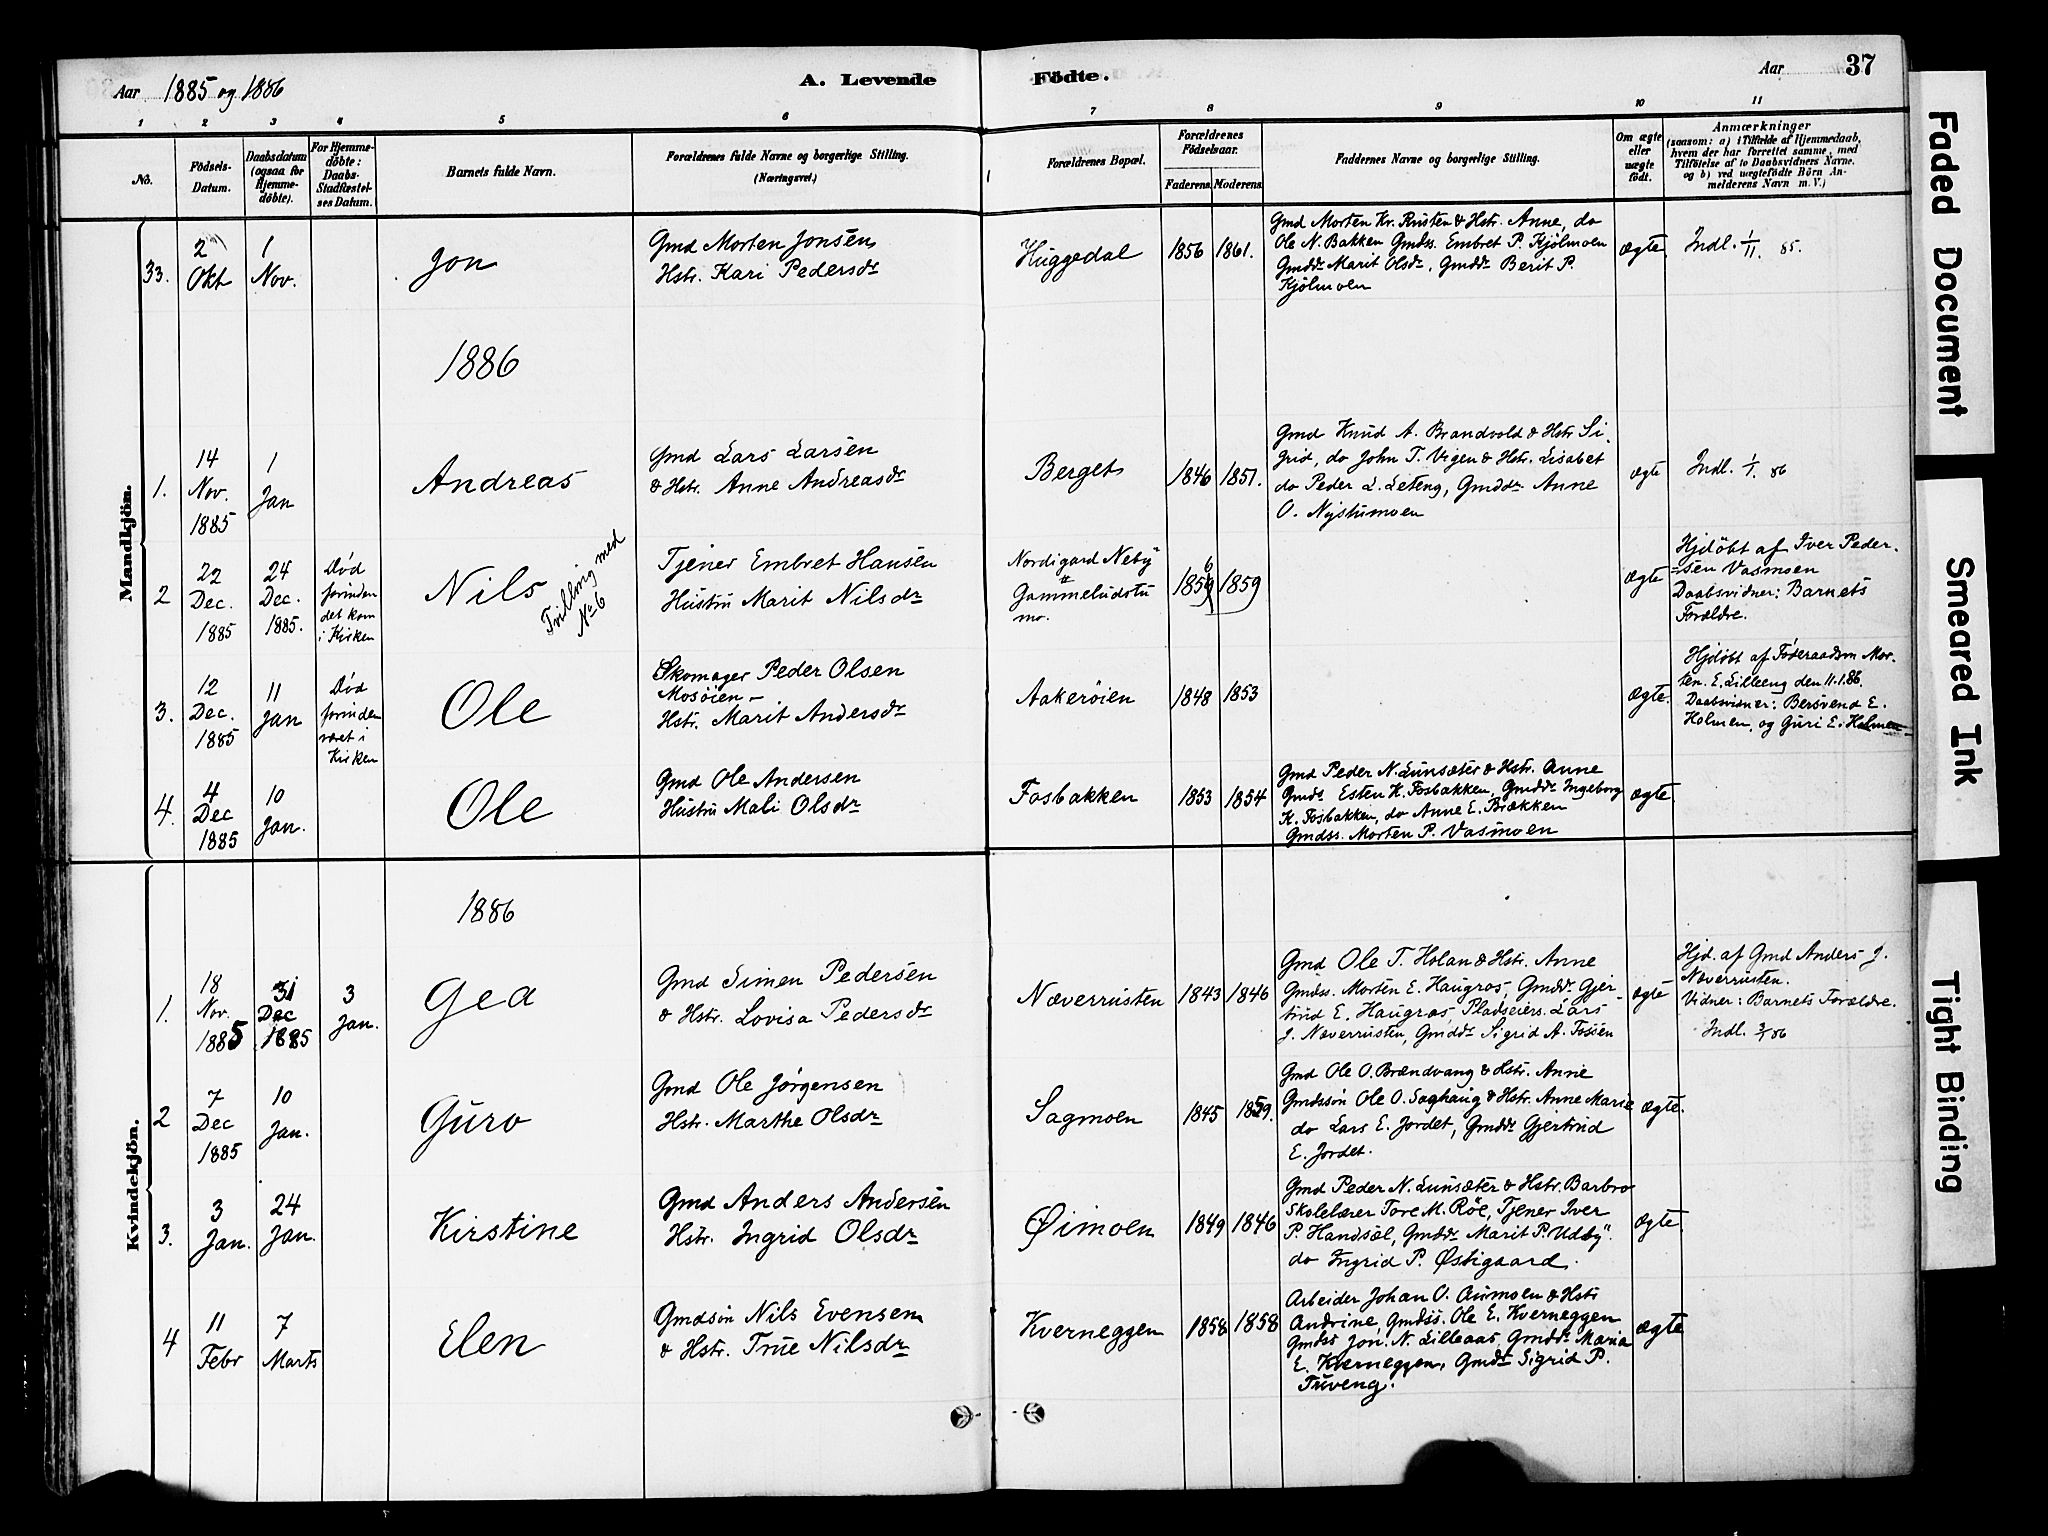 Aar 1885 og 1886
A. Levende Födte.
Aar 37
1 2 3 4 5 6 7 8 9 10 11
No.
Födsels-
Datum.
Daabsdatum
(ogsaa for
Hjemme-
döbte).
For Hjemme-
döbte:
Daabs-
Stadfæstel-
ses Datum.
Barnets fulde Navn.
Forældrenes fulde Navne og borgerlige Stilling.
(Næringsvei.)
Forældrenes Bopæl.
Forældrenes
Födselsaar.
Faderens. Moderens.
Faddernes Navne og borgerlige Stilling.
Om ægte
eller
uægte
födt.
Anmærkninger
(saasom: a) i Tilfælde af Hjemmedaab,
hvem der har forrettet samme, med
Tilföielse af to Daabsvidners Navne.
og b) ved uægtefödte Börn An-
melderens Navn m. V.)
Mandkjön.
33.
2
Okt
1
Nov.
Jon
Gmd Morten Jonsen
Hstr. Kari Pedersdr
Huggedal
1856 1861.
Gmd Morten Kr. Rusten & Hstr. Anne, do
Ole N. Bakken Gmdss. Embret P. Kjølmoen
Gmddr Marit Olsdr, Gmddr Berit P.
Kjølmoen
ægte.
Indl. 1/11. 85.
1886
1.
14
Nov.
1885
1
Jan
Andreas
Gmd Lars Larsen
& Hstr. Anne Andreasdr
Berget
1846 1851.
Gmd Knud A. Brandvold & Hstr Si-
grid, do John T. Vigen & Hstr. Lisabet
do Peder L. Leteng, Gmddr Anne
O. Nystumoen
ægte
Indl. 1/1. 86
2
22
Dec.
1885
24
Dec.
1885.
Død
forinden
det kom
i Kirken
Nils
Tvilling med
No 6
Tjener Embret Hansen
Hustru Marit Nilsdr
Nordigard Neby
Gammeludstu
mo.
1859 6 1859
ægte
Hjdöbt af Iver Peder-
sen Vasmoen
Daabsvidner: Barnets
Forældre.
3.
12
Dec.
1885
11
Jan
Død
forinden
været i
Kirken
Ole
Skomager Peder Olsen
Mosøien –
Hstr. Marit Andersdr
Aakerøien
1848 1853
ægte.
Hjdöbt af Föderaadsm Mor-
ten. E. Lilleeng den 11.1.86.
Daabsvidner: Bersvend E.
Holmen, og Guri E. Holmen
4.
4
Dec
1885
10
Jan.
Ole
Gmd Ole Andersen
Hustru Mali Olsdr
Fosbakken
1853 1854
Gmd Peder N. Lunsæter & Hstr. Anne
Gmds Esten K. Fosbakken, Gmddr Ingeborg
K. Fosbakken, do Anne E. Brækken
Gmdss. Morten P. Vasmoen
ægte.
Kvindekjön.
1886
1.
18
Nov.
1885
31
Dec
1885
3
Jan.
Gea
Gmd Simen Pedersen
& Hstr. Lovisa Pedersdr
Næverrusten
1843 1846
Gmd Ole T. Holan & Hstr. Anne
Gmdss. Morten E. Haugras Gmddr Gjer-
trud E. Haugras Pladseiers. Lars
J. Næverrusten, Gmddr Sigrid A. Fosien
ægte
Hjd. af Gmd Anders J.
Næverrusten.
Vidner: Barnets Forældre.
Indl. 3/1 86
2
7
Dec
1885
10
Jan.
Guro
Gmd Ole Jørgensen
Hstr. Marthe Olsdr
Sagmoen
1845 1859.
Gmd Ole O. Brændvang & Hstr. Anne
Gmdssön Ole O. Saghaug & Hstr. Anne Marie
do Lars E. Jordet, Gmddr Gjertrud
E. Jordet.
ægte.
3.
3
Jan.
24
Jan.
Kirstine
Gmd Anders Andersen
Hstr. Ingrid Olsdr
Øimoen
1849 1846
Gmd Peder N. Lunsæter & Hstr. Barbro
Skolelærer Tore M. Röe, Tjener Iver
P. Handsøl, Gmddr Marit P. Udby.
do Ingrid P. Østigaard.
ægte.
4
11
Febr
7
Marts
Elen
Gmdsön Nils Evensen
& Hstr. True Nilsdr
Kverneggen
1858 1858
Arbeider Johan O. Aumoen & Hstr
Andrine, Gmdss. Ole E. Kverneggen
Gmdss Jon. N. Lilleaas Gmddr Maria
E. Kverneggen, Gmdr Sigrid P.
Tuveng.
ægte
Faded Document
Smeared Ink
Tight Binding